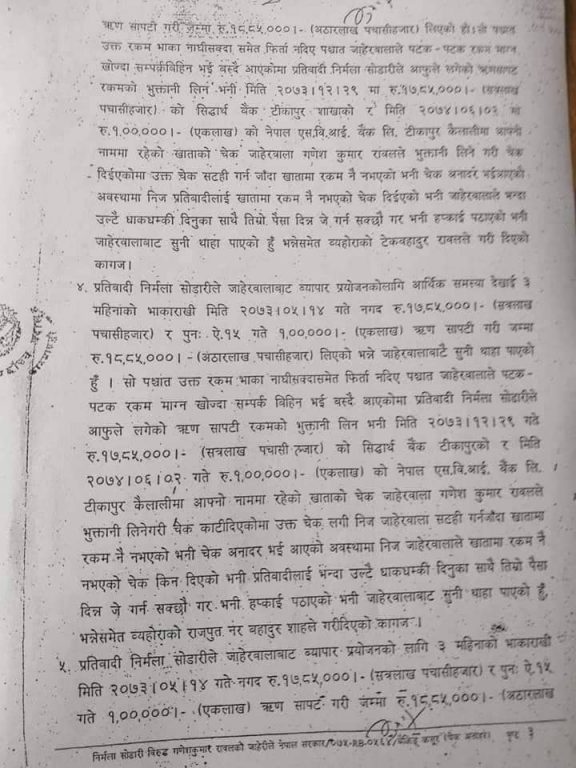 ऋण सापटी गरी जम्मा रु.१८,८५,०००।- (अठारलाख पचासीहजार) लिएको हो। सो पश्चात
उक्त रकम भाका नाघीसक्दा समेत फिर्ता नदिए पश्चात जाहेरवालाले पटक-पटक रकम माग्न
खोज्दा सम्पर्कविहिन भई बस्दै आएकोमा प्रतिवादी निर्मला सोडारीले आफुले लगेको ऋणसापट
रकमको भुक्तानी लिन भनी मिति २०७३।१२।२९ मा रु.१७,८५,०००।- (सत्रलाख
पचासीहजार) को सिद्धार्थ बैंक टीकापुर शाखाको र मिति २०७४।०६।०२ मा
रु.१,००,०००।- (एकलाख) को नेपाल एस.वि.आई. बैंक लि. टीकापुर कैलालीमा आफ्नो
नाममा रहेको खाताको चेक जाहेरवाला गणेश कुमार रावलले भुक्तानी लिने गरी चेक
दिईएकोमा उक्त चेक सटही गर्न जाँदा खातामा रकम नै नभएको भनी चेक अनादर भईआएको
अवस्थामा निज प्रतिवादीलाई खातामा रकम नै नभएको चेक दिईएको भनी जाहेरवालाले भन्दा
उल्टै धाकधम्की दिनुका साथै तिम्रो पैसा दिन्न जे गर्न सक्छौ गर भनी हप्काई पठाएको भनी
जाहेरवालाबाट सुनी थाहा पाएको हुँ भन्नेसमेत व्यहोराको टेकबहादुर रावलले गरी दिएको
कागज।
४. प्रतिवादी निर्मला सोडारीले जाहेरवालाबाट व्यापार प्रयोजनकोलागि आर्थिक समस्या देखाई ३
महिनाको भाकाराखी मिति २०७३।०५।१४ गते नगद रु.१७,८५,०००।- (सत्रलाख
पचासीहजार) र पुनः ऐ.१५ गते १,००,०००।- (एकलाख) ऋण सापटी गरी जम्मा
रु.१८,८५,०००।-(अठारलाख पचासीहजार) लिएको भन्ने जाहेरवालाबाटै सुनी थाहा पाएको
हुँ । सो पश्चात उक्त रकम भाका नाघीसक्दासमेत फिर्ता नदिए पश्चात जाहेरवालाले पटक-
पटक रकम माग्न खोज्दा सम्पर्क विहिन भई बस्दै आएकोमा प्रतिवादी निर्मला सोडारीले
आफुले लगेको ऋण सापटी रकमको भुक्तानी लिन भनी मिति २०७३।१२।२९ गते
रु.१७,८५,०००।- (सत्रलाख पचासी हजार) को सिद्धार्थ बैंक टीकापुरको र मिति
२०७४।०६।०२ गते रु.१,००,०००।- (एकलाख) को नेपाल एस.वि.आई. बैंक लि.
टीकापुर कैलालीमा आफ्नो नाममा रहेको खाताको चेक जाहेरवाला गणेश कुमार रावलले
भुक्तानी लिनेगरी चेक काटीदिएकोमा उक्त चेक लगी निज जाहेरवाला सटही गर्नजाँदा खातामा
रकम नै नभएको भनी चेक अनादर भई आएको अवस्थामा निज जाहेरवालाले खातामा रकम नै
नभएको चेक किन दिएको भनी प्रतिवादीलाई भन्दा उल्टै धाकधम्की दिनुका साथै तिम्रो पैसा
दिन्न जे गर्न सक्छौ गर भनी हप्काई पठाएको भनी जाहेरवालाबाट सुनी थाहा पाएको हुँ
भन्नेसमेत व्यहोराको राजपुत नर बहादुर शाहले गरीदिएको कागज।
५. प्रतिवादी निर्मला सोडारीले जाहेरवालाबाट व्यापार प्रयोजनको लागि ३ महिनाको भाकाराखी
मिति २०७३।०५।१४ गते नगद रु.१७,८५,०००।- (सत्रलाख पचासीहजार) र पुनः ऐ.१५
गते १,००,०००।- (एकलाख) ऋण सापट गरी जम्मा रु.१८,८५,०००।- (अठारलाख
निर्मला सोडारी विरुद्ध गणेशकुमार रावलको जाहेरीले नेपाल सरकार/ कसूर (चेक अनादर), पृष्ठ ३